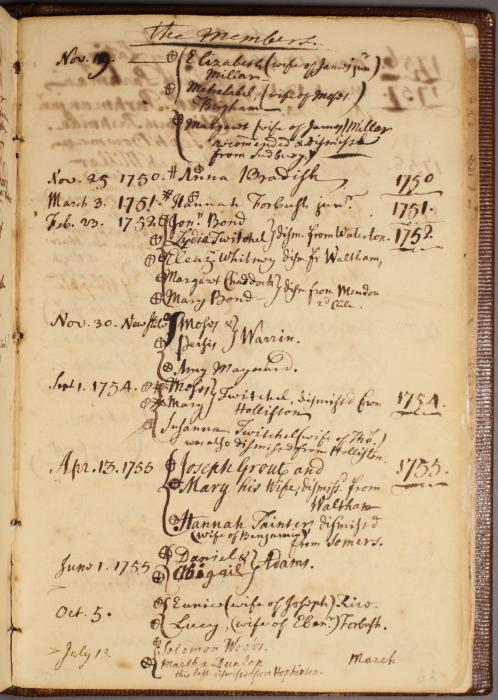 The Members.
Nov. 19. Elizabeth (wife of James jun
Millar
Mehetabel, (wife of Moses
Brigham
Margaret (wife of James) Millar
recomended & dismiss'd
from Sudbury
Nov. 25 1750. # Anna Bradish 1750
March 3. 1751. # Hannah Forbush junr. 1751.
Feb. 23. 1752. Jonn. Bond
Lydia Twitchel dism. from Waterton. 1752.
Eleazr Whitney dism. fr Waltham,
Margaret Chaddock dism from Mendon
2d Chh.
Mary Bond
Nov. 30. New Stile Moses &
Persis Warrin.
Amy Maynard.
Sept 1. 1754. Moses
Mary Twitchel, dismiss'd from 1754.
Holliston
Susanna Twitchel (wife of Tho.)
was also dismissed from Holliston.
Apr. 13. 1755 Joseph Grout and 1755.
Mary his Wife, dismiss. from
Waltham
Hannah Tainter dismiss'd
(wife of Benjamin) from Somers.
June 1. 1755 Daniel &
Abigail Adams.
Oct. 5. Eunice (wife of Joseph) Rice.
Lucy, (wife of Eben.) Forbush.
July 13. Solomon Woods.
Martha Dunlop March
this last dismiss'd from Hopkinton.